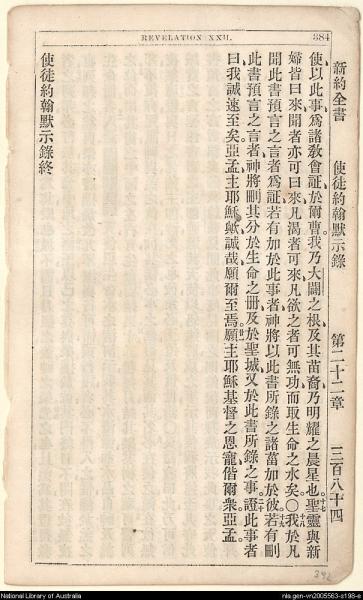 REVELATION XXII.
384
新約全書 使徒約翰默示錄 第二十二章 三百八十四
使以此事爲諸教會証於爾曹我乃大闢之根及其苗裔乃明耀之晨星也十七聖靈與新
婦皆曰來聞者亦可曰來凡渴者可來凡欲之者可無功而取生命之水矣〇十八我於凡
聞此書預言之言者爲証若有加於此事者神將以此書所錄之諸菑加於彼十九若有刪
此書預言之言者神將刪其分於生命之冊及於聖城又於此書所錄之事二十證此事者
曰我誠速至矣亞孟主耶穌歟誠哉願爾至焉廿一願主耶穌基督之恩寵偕爾衆亞孟
使徒約翰默示錄終
342
National Library of Australia
nla.gen-vn2005563-s198-e